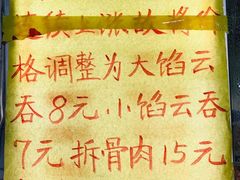 连续上涨故将价
格调整为大馅云
吞8元小馅云吞
7元拆骨肉15元